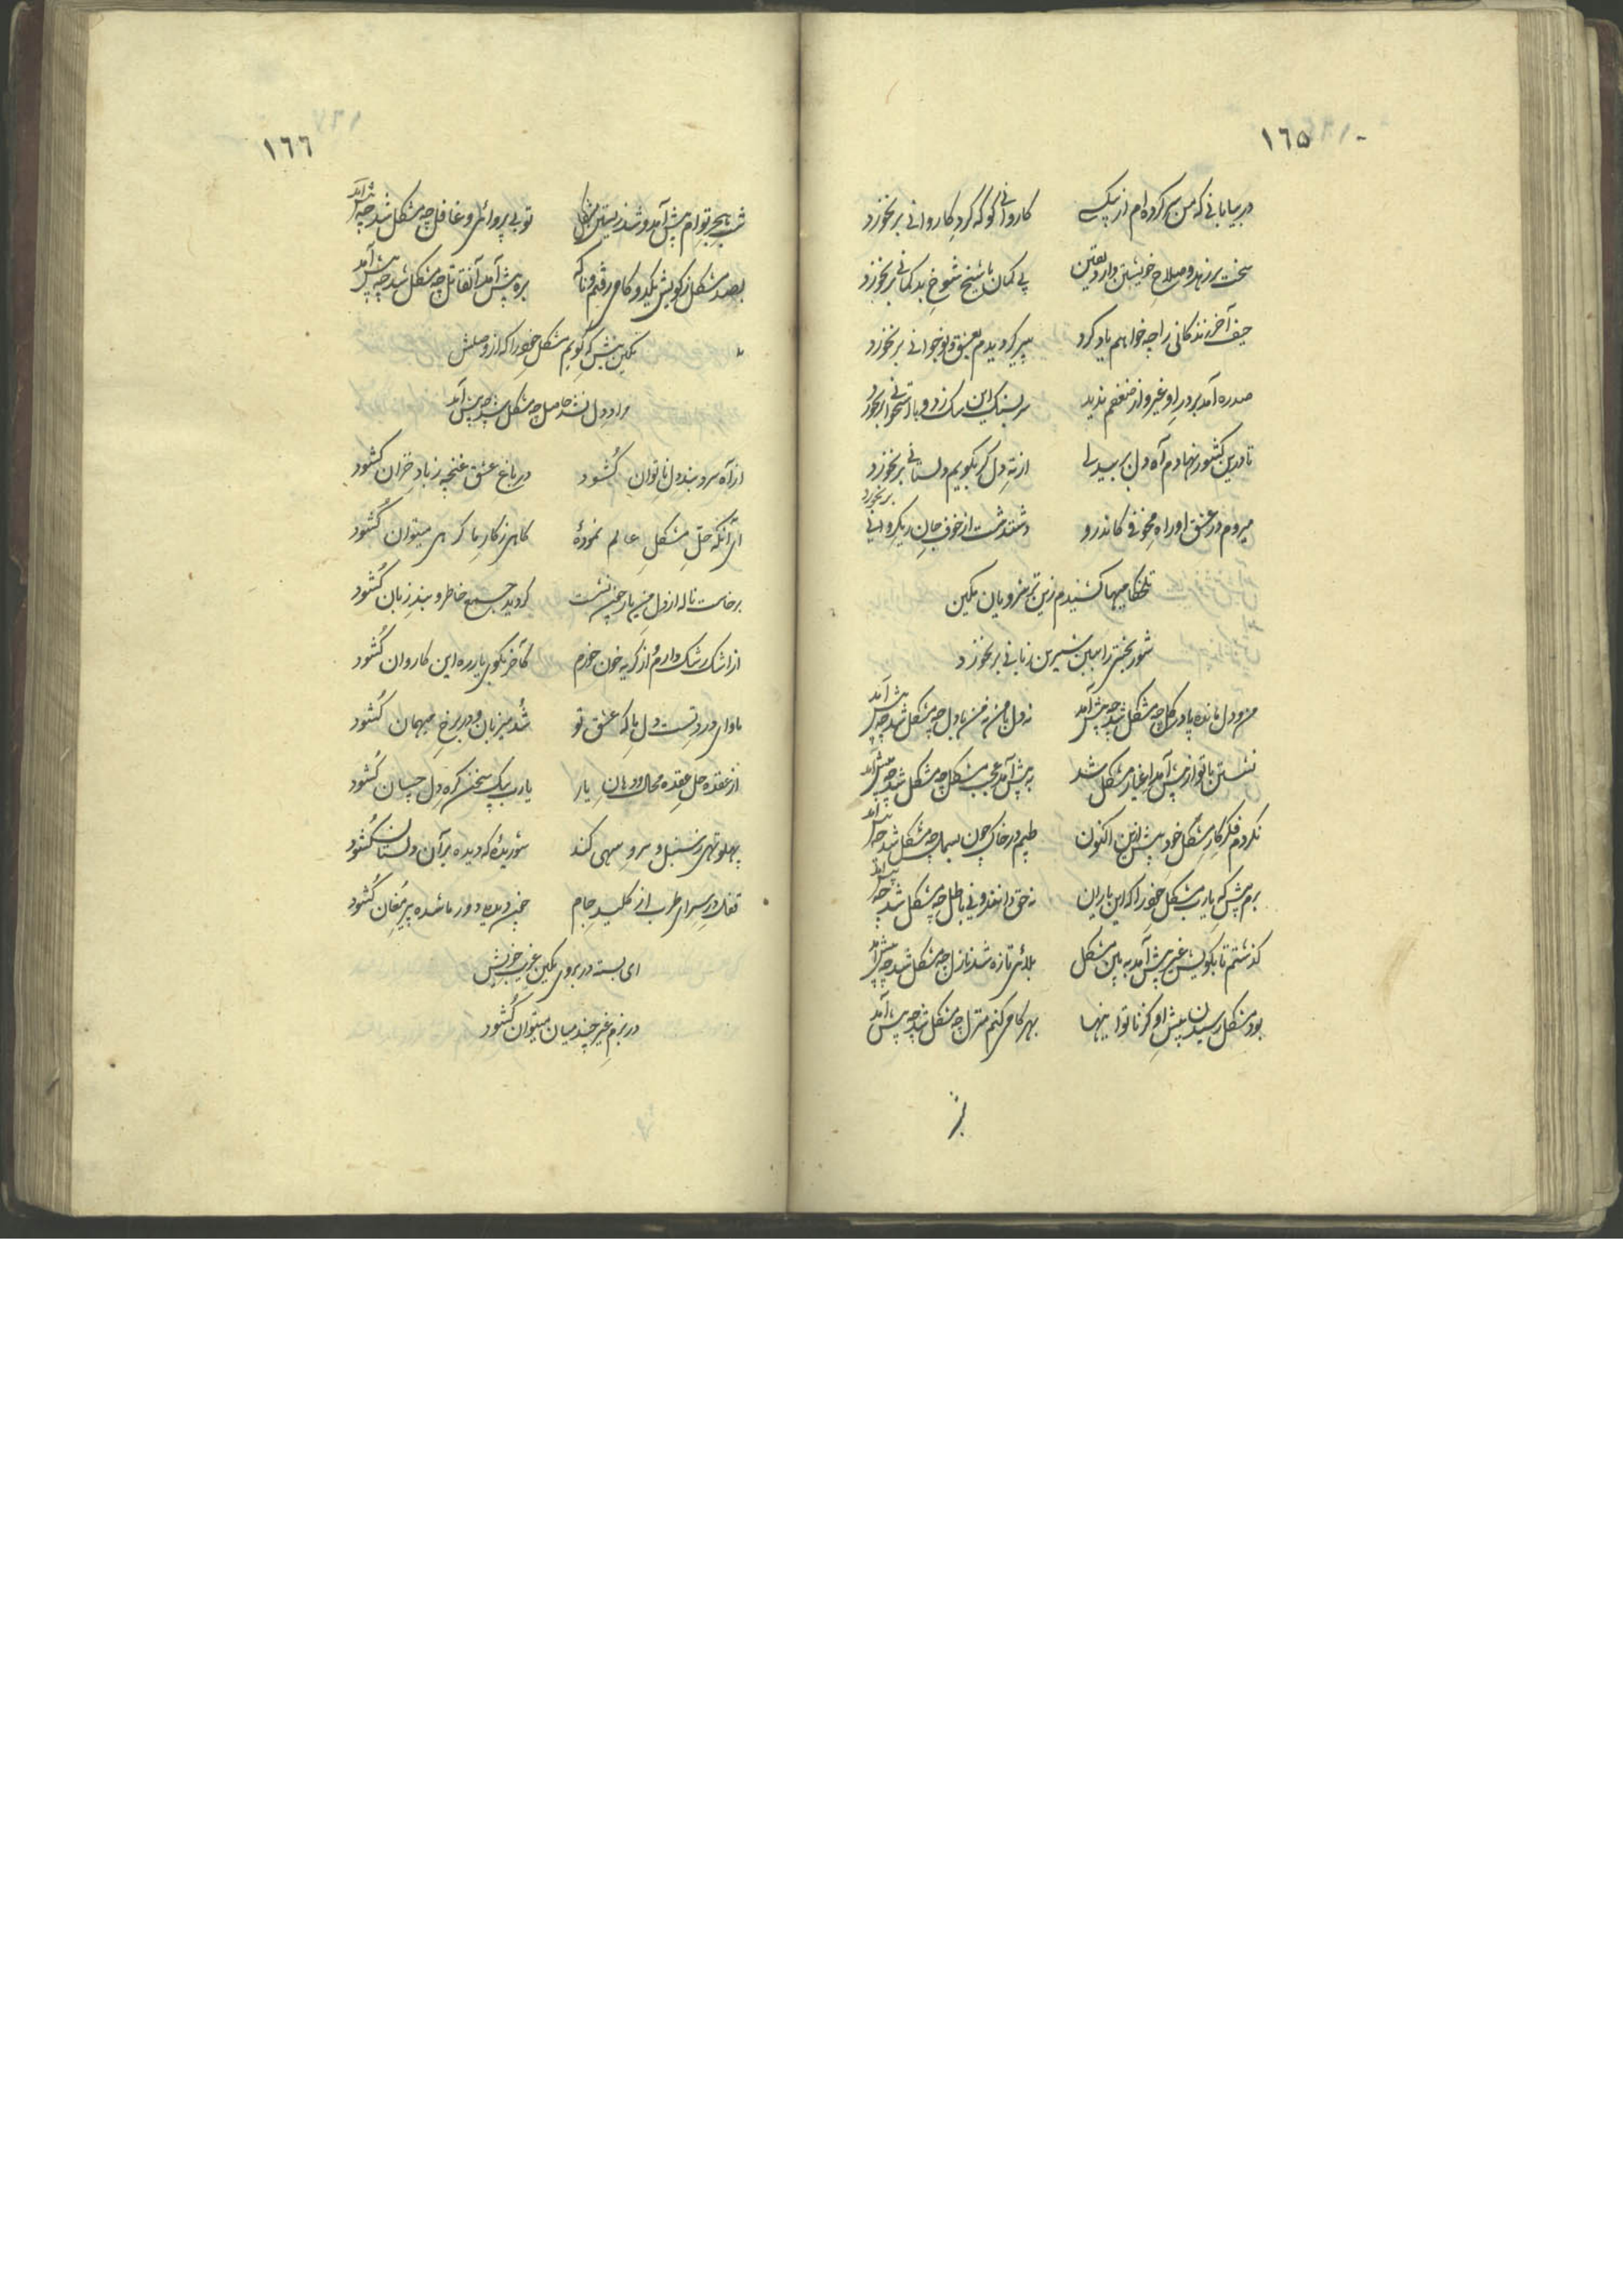 ١٦٥
در بیابانی که من سر کرده ام از بیکسی کاروانی کو که گرد کاروانی برنخورد
سخت بر زهد و صلاح خویشتن دارد یقین بی گمان با شیخ شوخ بدگمانی برنخورد
حیف آخر زندگانی را چه خواهم یاد کرد پیر گردیدم بعشق و نوجوانی برنخورد
صدره آمد بر در او غیر و از ضعفم ندید بر سنگ این سگ زد و با استخوانی برنخورد
تا درین کشور نهادم آه دل بر بیدلی از ته دل گر بگویم دلستانی برنخورد
میروم در عشق او راه مخوفی کاندرو دشت از خوف جان ریگ روانی برنخورد
تلخکامیها کشیدم زین ترشرویان نمکین
شوربختی را ببین شیرین زبانی برنخورد
من و دل مانده پا در گل چه مشکل شد چه پیش آمد نه دل با من نه من با دل چه مشکل شد چه پیش آمد
نشستن با تو از پیش آمد اغیار مشکل شد به پیش آمد عجب مشکل چه مشکل شد چه پیش آمد
نکردم فکر کار مشکل خود پیش ازین اکنون طپم در خاک چون بسمل چه مشکل شد چه پیش آمد
برم پیش که یارب مشکل خود را که این یاران نه حق دانند و نی باطل چه مشکل شد چه پیش آمد
گذشتم تا بکویش غیر پیش آمد به این مشکل بلائی تازه شد نازل چه مشکل شد چه پیش آمد
بود مشکل رسیدن پیش او کز ناتوانیها بهر گامی کنم منزل چه مشکل شد چه پیش آمد
١٦٦
شب هجر توام پیش آمد و شد زیستن مشکل تو بی پروائی و غافل چه مشکل شد چه پیش آمد
بصد مشکل ز کویش یکدو گامی رفتم و ناگه بره پیش آمد آن قاتل چه مشکل شد چه پیش آمد
نمکین پیش که گویم مشکل خود را که از وصلش
مراد دل نشد حاصل چه مشکل شد چه پیش آمد
از آه سرد بند دل ناتوان گشود در باغ عشق غنچه ز باد خزان گشود
ای آنکه حل مشکل عالم نموده کاهی ز کار ما گرهی میتوان گشود
برخاست ناله از دل من یار چون نشست گردید جمع خاطر و بند زبان گشود
از اشک رشک دارم و از گریه خون خورم کآخر بکوی یار ره این کاروان گشود
ماوای درد تست دل ما که عشق تو شد میزبان و در برخ میهمان گشود
از عقده حل عقده محال و دهان یار یارب بیک سخن گره دل چسان گشود
پهلو تهی ز سنبل و سرو سهی کند شوریده که دیده بر آن دلستان گشود
قفل در سرای طرب از کلید جام دیده دور ما شده پیر مغان گشود
ای بسته در بروی نمکین غریب خویش
در بزم غیر چند میان میتوان گشود